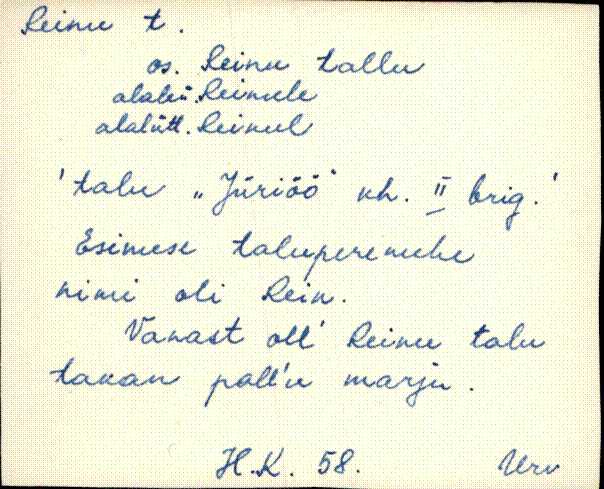 Reinu t.
os. Reinu tallu
alaleü. Reinule
alalütl. Reinul
'talu „Jüriöö" kh. II brig.'
Esimese taluperemehe
nimi oli Rein.
Vanast oll' Reinu talu
takan pall'u marju.
H.K. 58. Urv